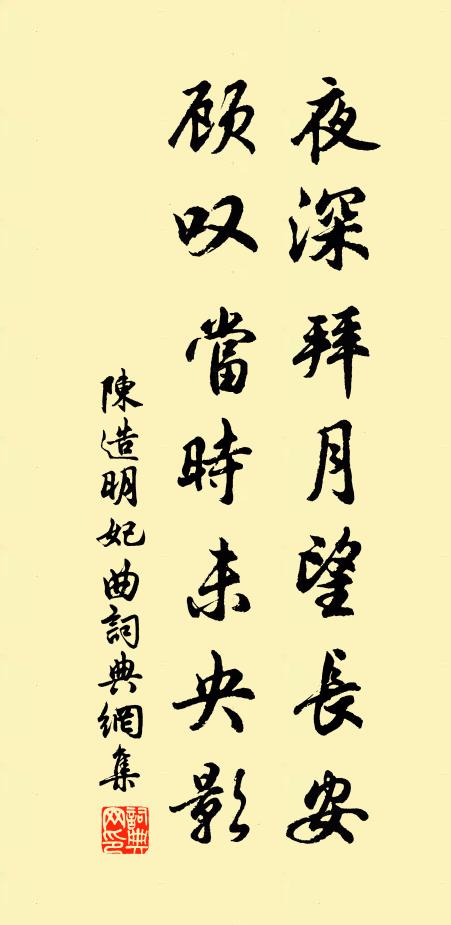 夜深拜月望長安
顧叹當時未央影
陳造明妃曲詞典網集
詞典
网印